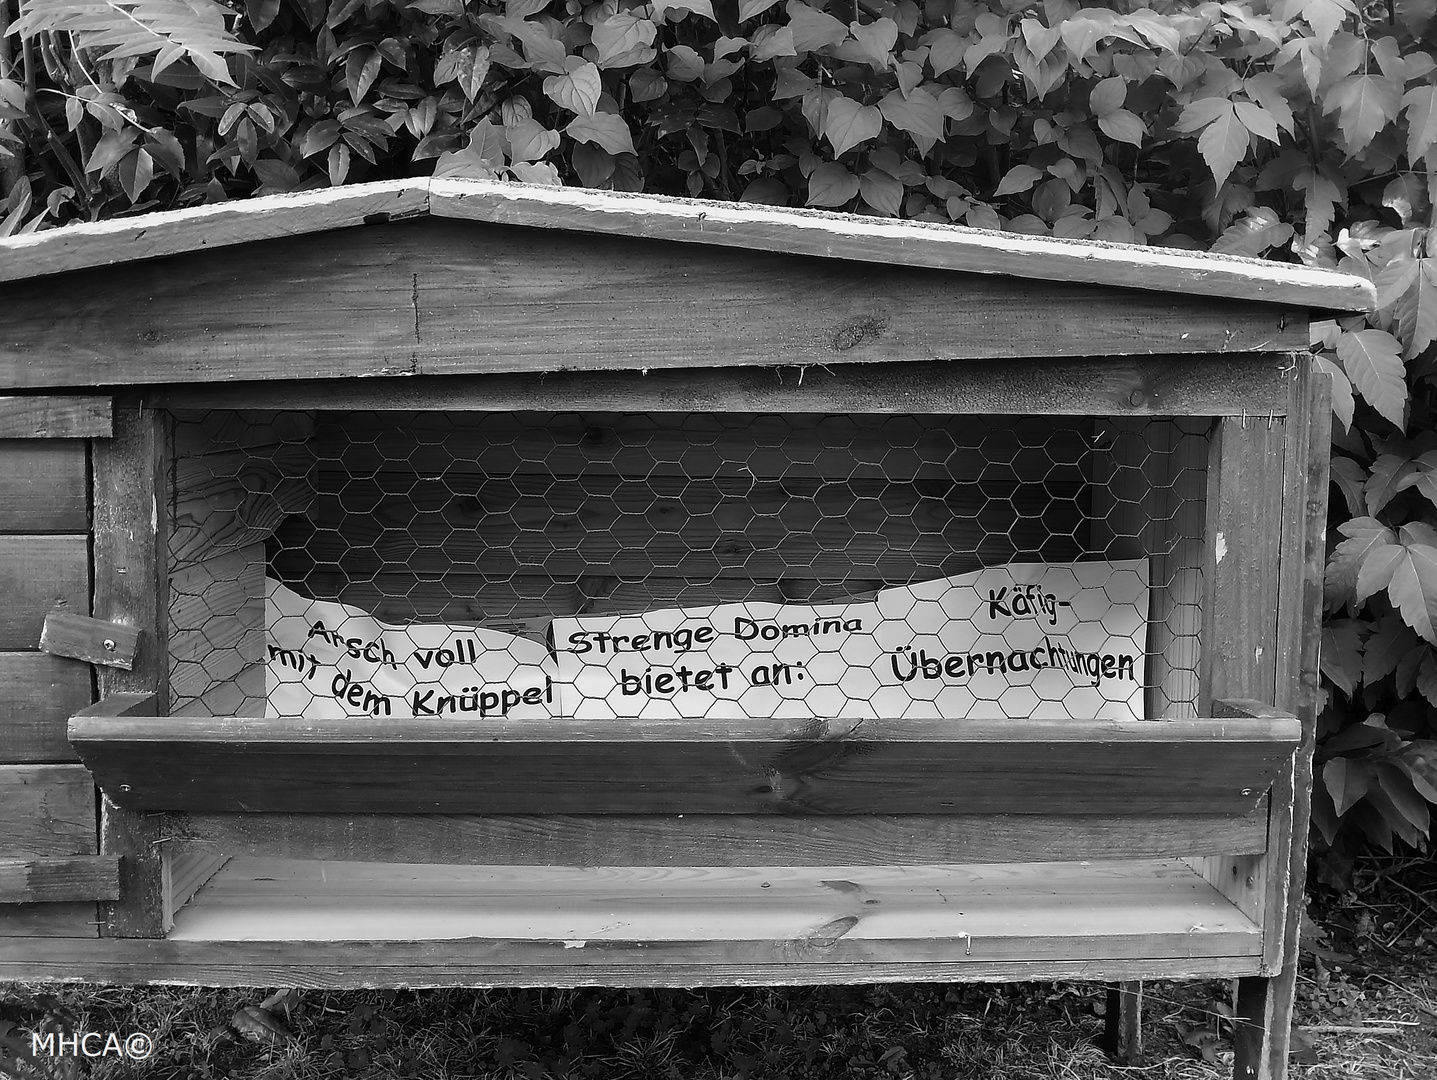 Arsch voll
mit dem Knüppel
Strenge Domina
bietet an:
Käfig-
Übernachtungen
MHCA©